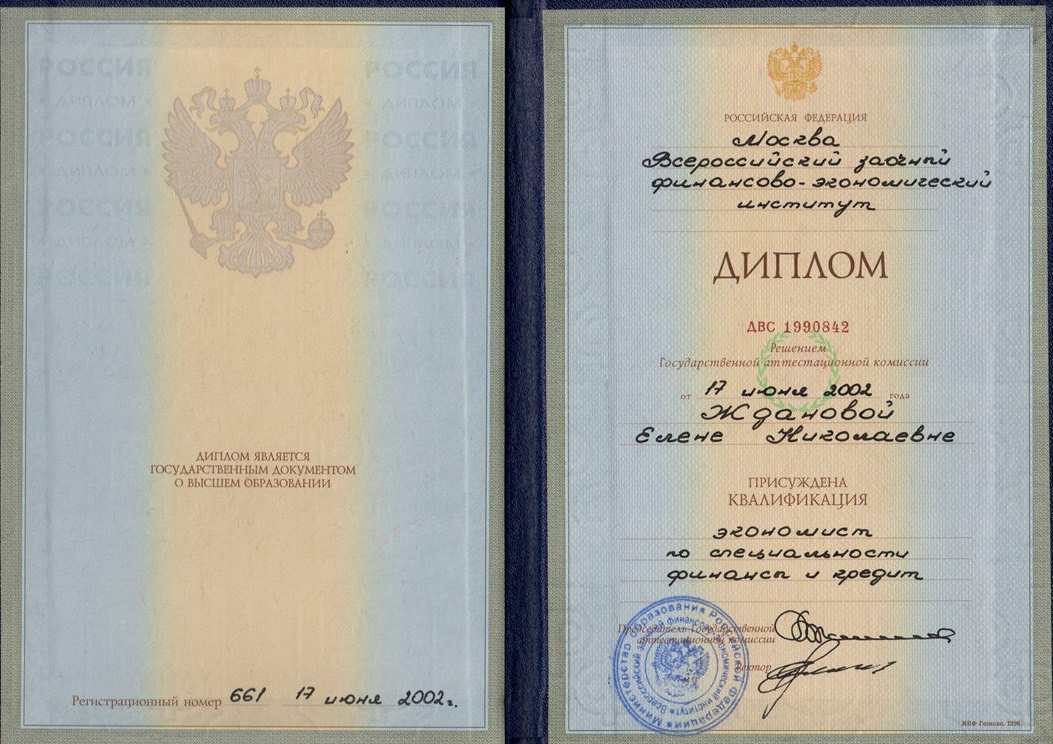 РОССИЯ РОССИЯ
ДИПЛОМ ДИПЛОМ
РОССИЯ РОССИЯ
ДИПЛОМ ДИПЛОМ
РОССИЯ РОССИЯ
ДИПЛОМ ДИПЛОМ
РОССИЯ РОССИЯ
ДИПЛОМ ЯВЛЯЕТСЯ
ГОСУДАРСТВЕННЫМ ДОКУМЕНТОМ
О ВЫСШЕМ ОБРАЗОВАНИИ
Регистрационный номер 661 17 июня 2002 г.
РОССИЙСКАЯ ФЕДЕРАЦИЯ
Москва
Всероссийский заочный
финансово-экономический
институт
ДИПЛОМ
ДВС 1990842
Решением
Государственной аттестационной комиссии
от 17 июня 2002 года
Ждановой
Елене Николаевне
ПРИСУЖДЕНА
КВАЛИФИКАЦИЯ
экономист
по специальности
финансы и кредит
Председатель Государственной
аттестационной комиссии
Ректор
Министерство образования Российской Федерации
Всероссийский заочный финансово-экономический институт
МПФ Гознака. 1996.